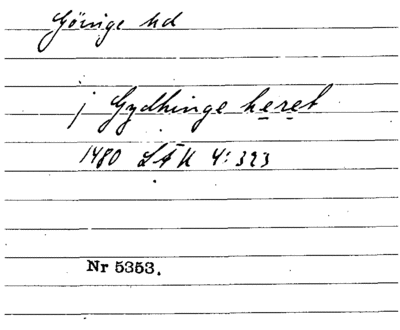 Göinge hd
j Gydhinge heret
1480 LÄU 4: 323
Nr 5353.